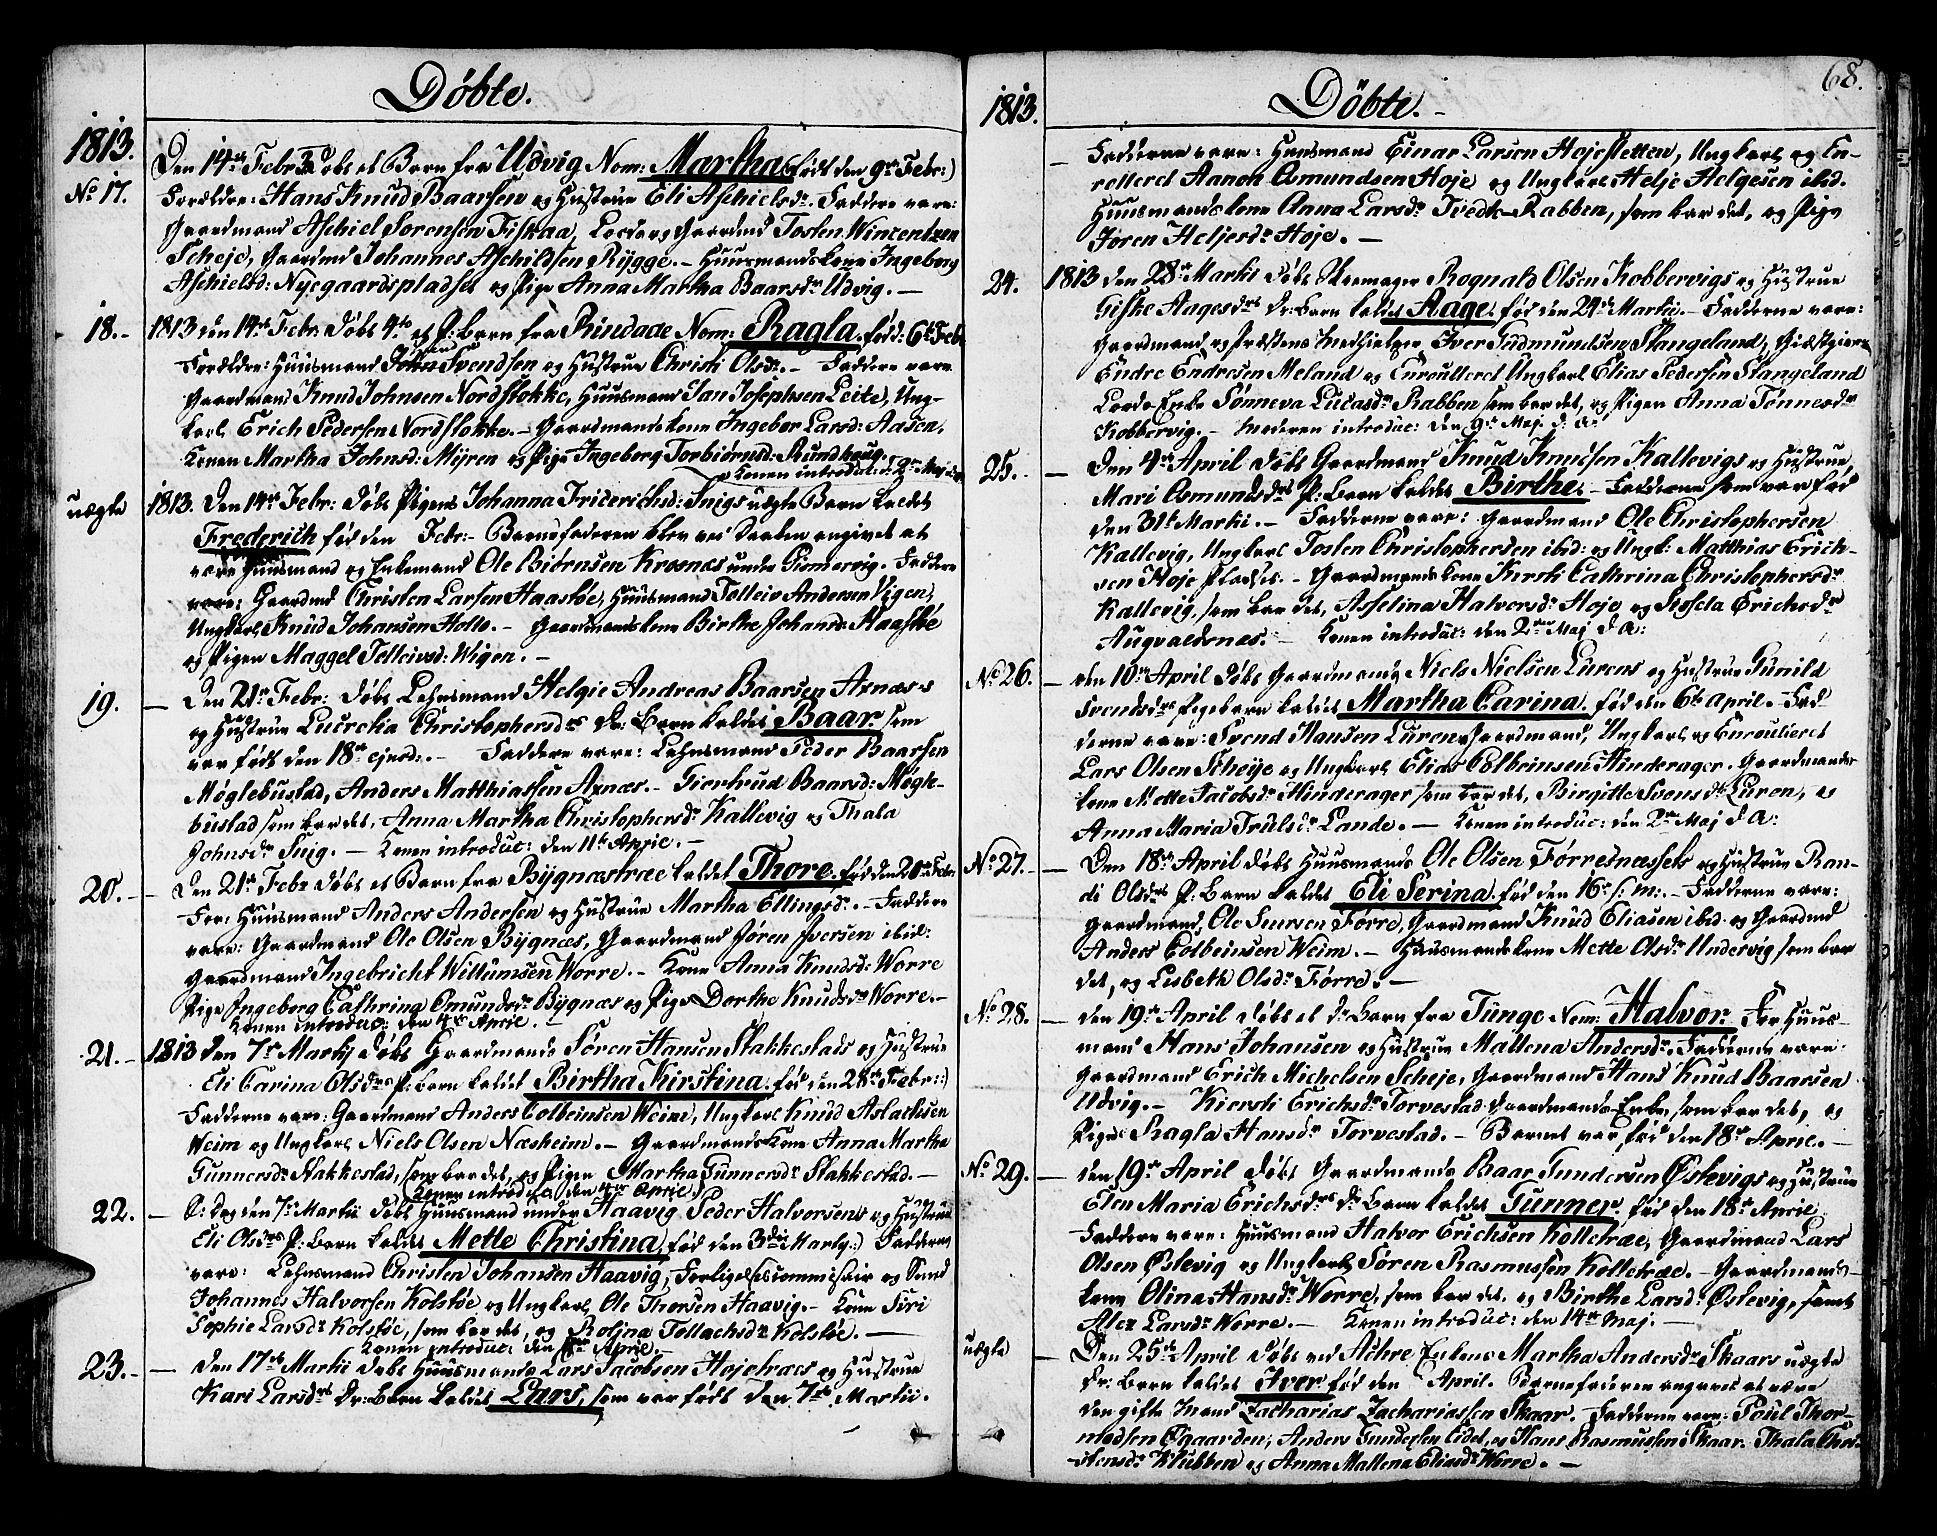 Døbte.
1813.
No 17.
Den 14de Febr: Døbt et Barn fra Udvig Nom: Martha (født den 9de Febr:)
Forældre: Hans Knud Baarsen og Hustrue Eli Aschielsdr. Faddere vare:
Gaardmand Aschiel Sorensen Fiskaa, Gaardmd Tosten Wincentzen
Scheje, Gaardmd Johannes Aschildsen Rygge. - Huusmands kone Ingeborg
Aschielsd: Nyegaardspladset og Pige Anna Martha Baarsdr Udvig. -
18. - 1813 den 14de Febr: Døbt et P: Barn fra Rindade Nom: Ragla. fød: 6te Febr
Forældre: Huusmand Svendsen og Hustrue Christi Olsdr. - Faddere vare
Gaardmand Knud Johnsen Nordstokke, Huusmand Jan Josephsen Leite, Ung-
karl Erich Pedersen Nordstokke. - Gaardmands kone Ingebor Larsd: Aasen,
Konen Martha Johnsd: Myren og Pige Ingeborg Torbiørnsd: Rundhoug.
Konen introduc: 2den Maj
uægte 1813. Den 14de Febr: Døbt Pigens Johanna Friderichsd: Snigs uægte Barn kaldet
Frederich fød den Febr: - Barnefaderen blev ved Daaben angivet at
være Huusmand og Enkemand Ole Biørnsen Krosnæs under Giømervig. Faddere
vare: Gaardmd Christen Larsen Haastøe, Huusmand Tolleiv Andersen Vigen,
Ungkarl Knud Johansen Holle. - Gaardmands kone Birthe Johansd: Haastøe
og Pigen Maggel Tolleivsd: Wigen. -
19. - Den 21de Febr: Døbt Lehnsmand Helgie Andreas Baarsen Axnæs
og Hustrue Lucretia Christophersdrs Dr: Barn kaldet Baar som
var født den 18de ejusd: - Faddere vare: Lehnsmand Peder Baarsen
Møglebustad, Anders Matthiassen Axnæs. - Giertrud Baarsd: Møgle-
bustad som bar det, Anna Martha Christophersdr Kallevig og Thala
Johnsdr Snig. - Konen introduc: den 11te Aprie. -
20. - Den 21de Febr Døbt et Barn fra Bygnæstræe kaldet Thore. fød den 20de Febr
For: Huusmand Anders Andersen og Hustrue Martha Ellingsdr. - Faddere
vare: Gaardmand Ole Olsen Bygnæs, Gaardmand Jøren Iversen ibid:
Gaardmand Ingebricht Willumsen Worre. - Kone Anna Knudsd: Worre
Pige Ingeborg Cathrina Omundsdr Bygnæs og Pige Dorthe Knudsdr Worre. -
Konen introduc: den 4de April. -
21. - 1813 den 7de Martij Døbt Gaardmands Søren Hansen Stakkestads og Hustrue
Eli Carina Olsdrs P: Barn kaldet Birtha Kirstina. fød den 28de Febr:)
Fadderne vare: Gaardmand Anders Colbeinsen Weim, Ungkarl Knud Aslachsen
Weim og Ungkarl Niels Olsen Næsheim. - Gaardmands Kone Anna Martha
Gunnersdr Stakkestad, som bar det, og Pigen Martha Gunnersdr Stakkestad. -
(Konen introduc: den 4de Aprie.)
22. - S: Dag den 7de Martii Døbt Huusmand under Haavig Peder Halvorsens og Hustrue
Eli Olsdrs P: Barn kaldet Mette Christina (fød den 3die Marty:) Faddere
vare: Lehnsmand Christen Johansen Haavig, Forligelsescommissair og Smed
Johannes Halvorsen Kolstøe og Ungkarl Ole Thorsen Haavig. - Kone Siri
Sophie Larsdr Kolstøe, som bar det, og Rosina Tollachsdr Kolstøe. -
Konen introduc: den Aprie. -
23. - Den 17de Martii Døbt Huusmands Lars Jacobsen Hojetræes og Hustrue
Kari Larsdrs Dr: Barn kaldet Lars, som var født den 7de Martii.
68.
1813. Døbte. -
- Fadderne vare: Huusmand Einar Larsen Hojesletten, Ungkarl og En-
rolleret Aanon Osmundsen Hoje og Ungkarl Helje Helgesen ibid.
Huusmandskone Anna Larsdr Tvedt-Rabben, som bar det, og Pige
Joren Heljesdr Hoje. -
24. 1813 den 28de Martii Døbt Skomager Rognald Olsen Kobbervigs og Hustrue
Giske Aagesdrs Dr: Barn kaldet Aage. fød den 24de Martii. - Fadderne vare:
Gaardmand og Præstens Medhielper Iver Gudmundsen Stangeland, Giæstgiver
Endre Endresen Meland og Enroulleret Ungkarl Elias Pedersen Stangeland
Enke Sønneva Lucasdr Rabben som bar det, og Pigen Anna Tønnesdr
Kobbervig. - Moderen introduc: den 9de Maj d: a:
25. - Den 4de April Døbt Gaardmand Knud Knudsen Kallevigs og Hustrue
Mari Osmundsdrs P: Barn kaldet Birthe. - som var fød
den 31te Martii. - Fadderne vare: Gaardmand Ole Christophersen
Kallevig, Ungkarl Tosten Christophersen ibid: og Ungk: Matthias Erich-
sen Hoje Pladset. - Gaardmands kone Kirsti Cathrina Christophersdr
Kallevig, som bar det, Asselina Halvorsdr Hoje og Erichsdr
Augvaldsnæs. - Konen introduc: den 2den Maj d: a:
No 26. - den 10de April Døbt Gaardmands Niels Nielsen Lurens og Hustrue Gunild
Svendsdrs Pigebarn kaldet Martha Carina. fød den 6te April. - Fad-
derne vare: Svend Hansen Luren Gaardmand, Ungkarl og Enroulieret
Lars Olsen Scheije og Ungkarl Elias Colbeinsen Hinderager. Gaardmands
kone Mette Jacobsdr Hinderager som bar det, Birgitte Svensdr Luren, og
Anna Maria Trulsdr Lande. - Konen introduc: den 2den Maj d: a:
No 27. - Den 18de April Døbt Huusmands Ole Olsen Førresnæssets og Hustrue Ran-
di Olsdrs P: Barn kaldet Eli Serina. fød den 16de s: m: - Fadderne vare:
Gaardmand Ole Førre, Gaardmand Knud Eliasen ibid. og Gaardmd
Anders Colbeinsen Weim. - Huusmandskone Mette Olsdr Undervig som bar
det, og Lisbeth Olsdr Førre. -
No 28. - den 19de April Døbt et dr: Barn fra Tunge Nom: Halvor. For: Huus-
mand Hans Johansen og Hustrue Mallena Andersdr. Fadderne vare:
Gaardmand Erich Michelsen Scheje, Gaardmand Hans Knud Baarsen
Udvig. - Kiersti Erichsdr Torvestad Gaardmands Enke, som bar det, og
Pige Ragla Hansdr Torvestad. - Barnet var fød den 18de Aprie. -
No 29. - den 19de April Døbt Gaardmands Baar Gundersen Østevigs og Hustrue
Elen Maria Erichsdrs dr: Barn kaldet Gunner, fød den 18de Aprie.
Fadderne vare: Huusmand Halvor Erichsen Kolletræe, Gaardmand Lars
Olsen Østevig og Ungkarl Søren Rasmussen Kolletræe. - Gaardmands-
kone Olina Hansdr Worre, som bar det, og Birthe Larsd: Østevig, samt
Larsdr Worre. - Konen introduc: den 14de Maj. -
uægte - Den 25de April Døbt ved Achre Enkens Martha Andersdr Skaars uægte
Dr: Barn kaldet Iver fød den April. Barnefaderen angavet at være
den gifte Mand Zacharias Zachariassen Skaar. Fadderne vare: Poul Thor-
modsen Øgaarden, Anders Gundersen Eidet, og Hans Rasmussen Skaar. Thala
Klubben og Anna Mallena Eliasdr Worre. -